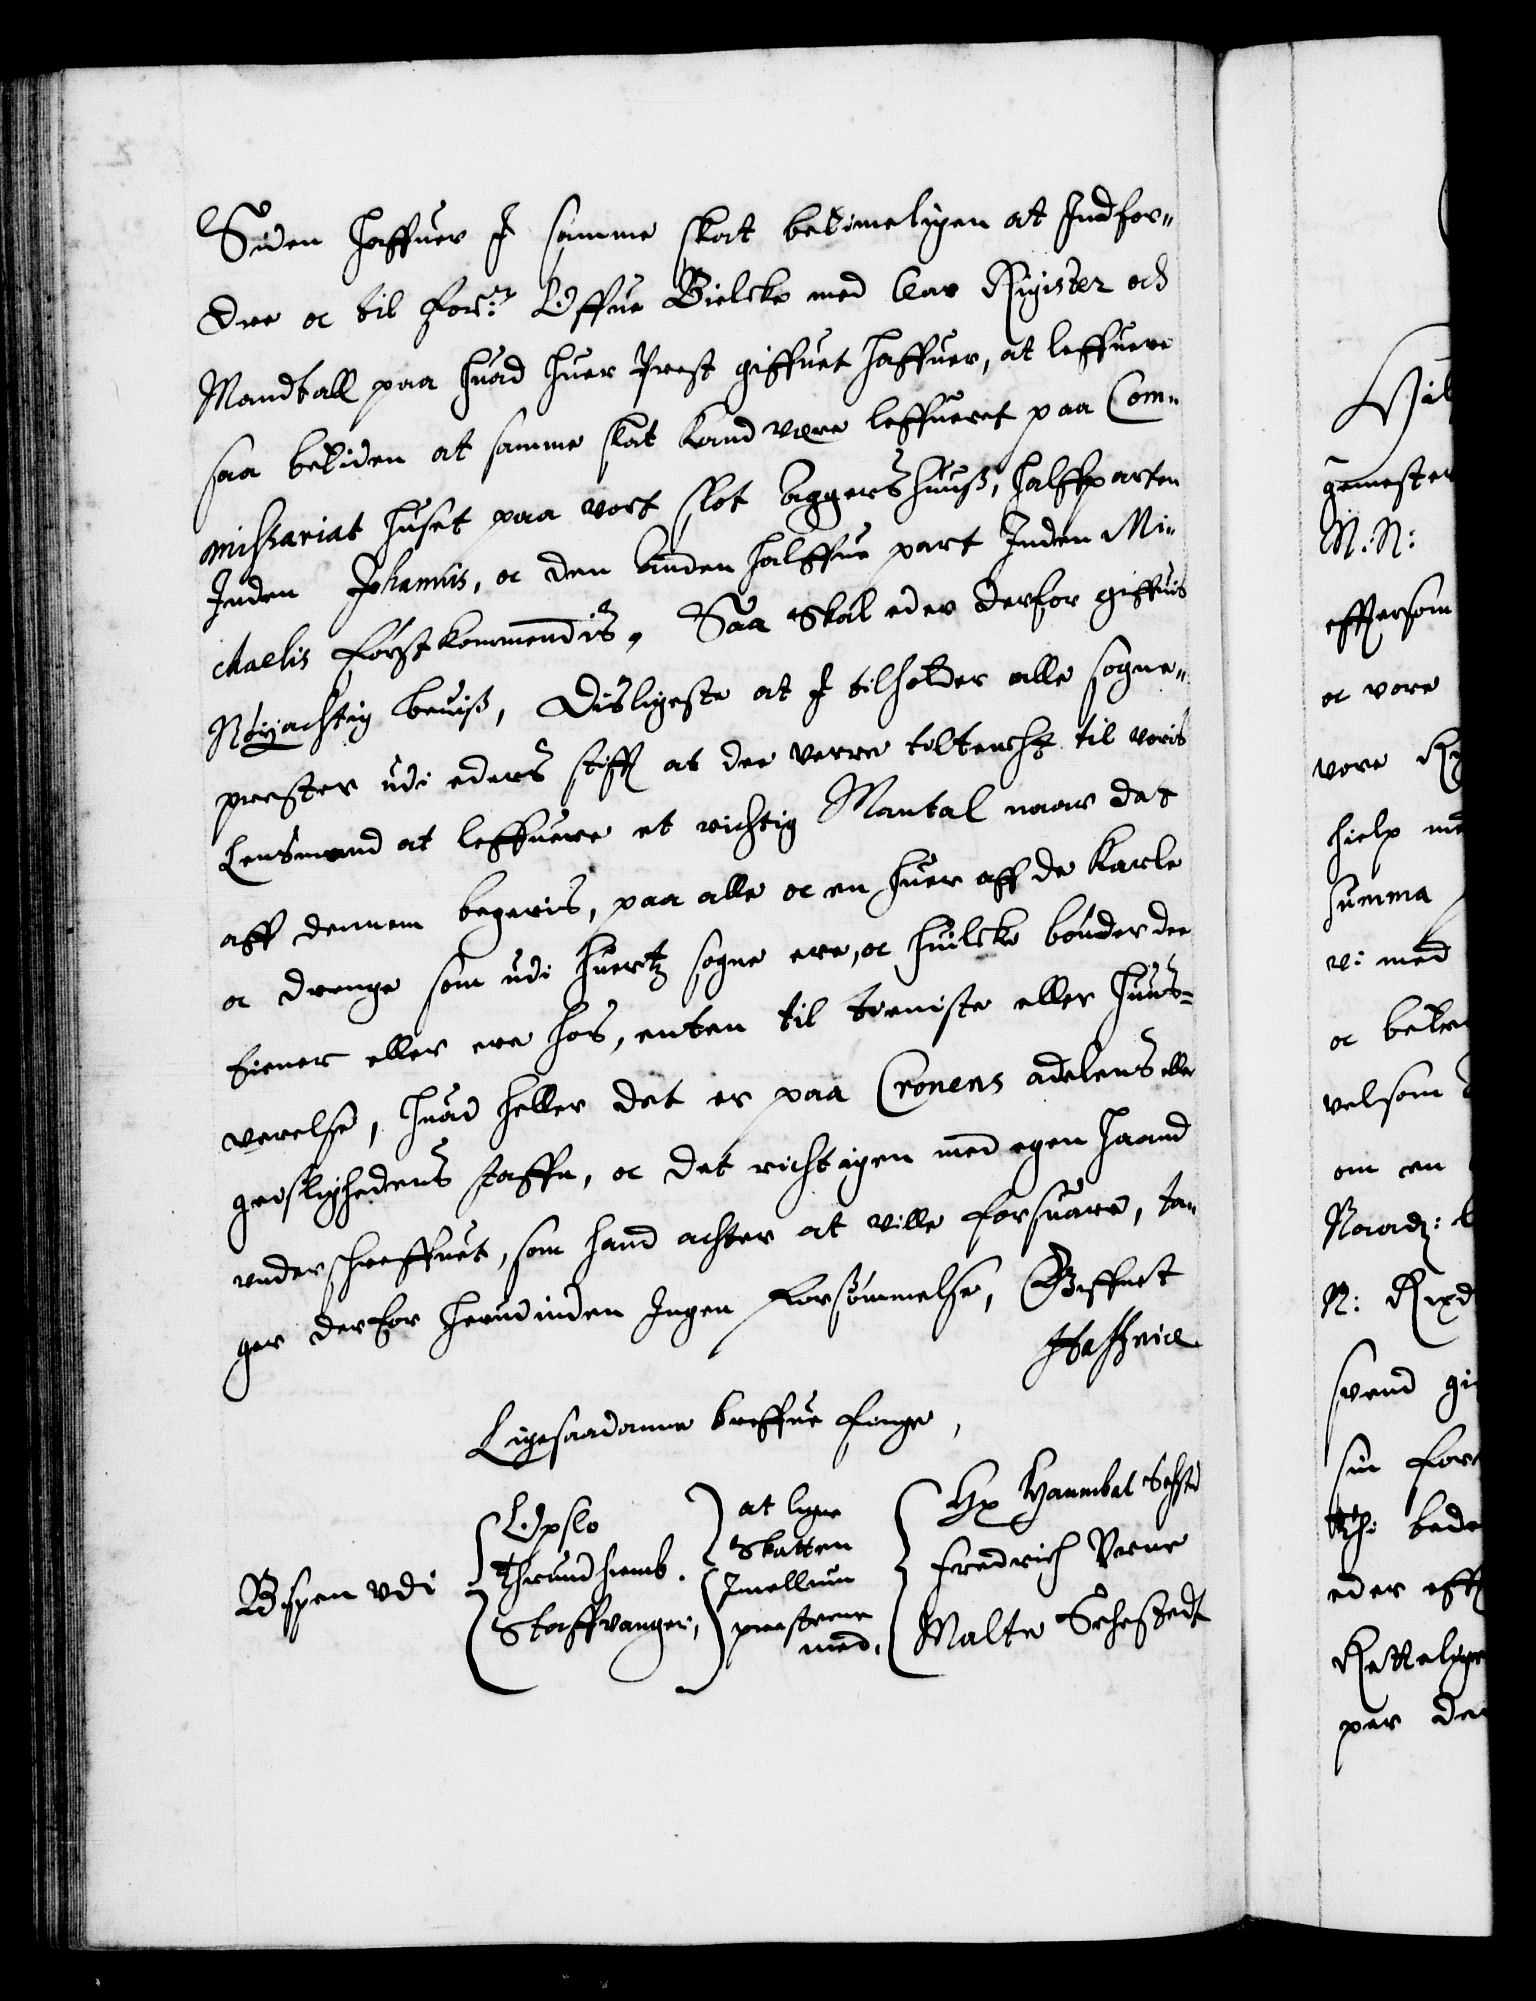 Siden haffuer I samme skat betimeligen at Indfor„
dre oc til for:ne Offue Bielcke med klar Rigister och
Mandtall paa huad huer Prest giffuet haffuer, at leffuere
saa betiden at samme skat kand være leffueret paa Com„
missariat huset paa vort slot Aggershuuß, halffparten
Inden Johannis, oc den anden halffue part Inden Mi„
chaelis førstkommendis, Saa skal eder derfor giffuis
Nøyachtig beuiß, Disligeste at I tilholder alle sogne„
prester udi eders stifft at dee verre tiltencht til voris
Lensmand at leffuere et richtig Mantal naar det
aff dennem begeris, paa alle oc en huer aff de Karle
oc drenge som udi huertz sogne ere, oc huilcke bønder dee
tiener eller ere hos, enten til tieniste eller huus-
verelse, huad heller det er paa Cronens adelens eller
geistlighedens staffn, oc det richtigen med egen haand
underschreffuet, som hand achter at ville forsuare, ta„
ger derfor herudinden Ingen forsømmelse, Giffuet
Haffnie
Ligesaadanne breffue finge,
Bispen vdi
Opslo
Thrundhiemb.
Staffvanger,
at ligne
Skatten
Imellum
presterne
med.
Hr Hannibal Sehsted
Fredrich Urne
Malte Sehestedt
Vil
gemester
N: N:
effttersom
oc vore
vore
hielp
summa
v: med
oc
velsom
om en
N:
svend
sin for
bede
eder efft
per